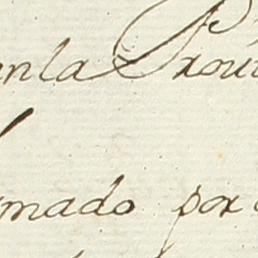 enla Prou
mado por